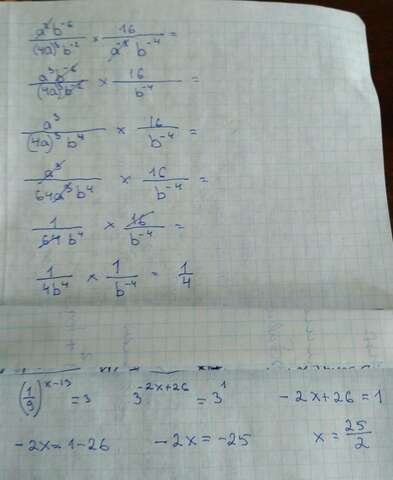 a² b⁻⁶ / (4a)³ b⁻² × 16 / a⁻¹ b⁻⁴ =
a³ b⁻⁶ / (4a)³ b⁻² × 16 / b⁻⁴ =
a³ / (4a)³ b⁴ × 16 / b⁻⁴ =
a³ / 64a³ b⁴ × 16 / b⁻⁴ =
1 / 64 b⁴ × 16 / b⁻⁴ =
1 / 4b⁴ × 1 / b⁻⁴ = 1/4
(1/9)ˣ⁻¹³ = 3 3⁻²ˣ⁺²⁶ = 3¹ -2x+26=1
-2x=1-26 -2x=-25 x=25/2